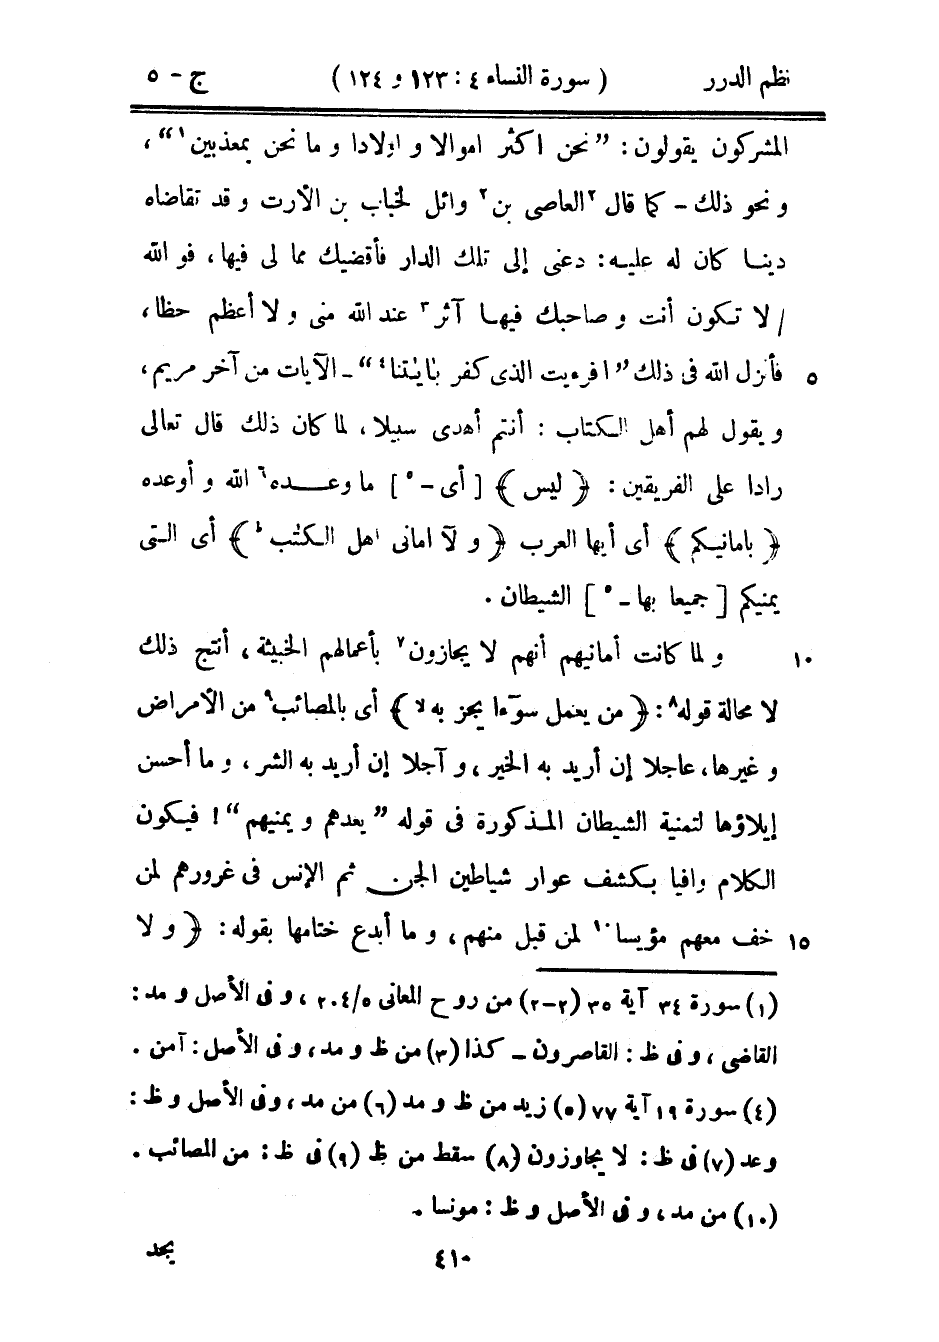 نظم الدرر ( سورة النساء ٤ : ١٢٣ و ١٢٤ ) ج - ٥
المشركون يقولون : ”نحن اكثر اموالا و اولادا و ما نحن بمعذبين١“ ،
و نحو ذلك - كما قال ٢العاصى بن٢ وائل لخباب بن الأرت و قد تقاضاه
دينا كان له عليه : دعنى إلى تلك الدار فأقضيك مما لى فيها ، فو الله
/ لا تكون أنت و صاحبك فيها آثر٣ عند الله منى و لا أعظم حظا ،
فأنزل الله فى ذلك ”افرءيت الذى كفر باٰيٰتنا٤“ - الآيات من آخر مريم ، ٥
و يقول لهم أهل الكتاب : أنتم أهدى سبيلا ، لما كان ذلك قال تعالى
رادا على الفريقين : ﴿ ليس ﴾ [ أى - ٥ ] ما وعده٦ الله و أوعده
﴿ بامانيكم ﴾ أى أيها العرب ﴿ و لآ امانى اهل الكتٰب ط ﴾ أى التى
يمنيكم [ جميعا بها - ٥ ] الشيطان .
و لما كانت أمانيهم أنهم لا يجازون٧ بأعمالهم الخبيثة ، أنتج ذلك ١٠
لا محالة قوله٨ : ﴿ من يعمل سوٓءا يجز به لا ﴾ أى بالمصائب٩ من الأمراض
و غيرها ، عاجلا إن أريد به الخير ، و آجلا إن أريد به الشر ، و ما أحسن
إيلاؤها لتمنية الشيطان المذكورة فى قوله ”يعدهم و يمنيهم“ ! فيكون
الكلام وافيا بكشف عوار شياطين الجن ثم الإنس فى غرورهم لمن
خف معهم مؤيسا١٠ لمن قبل منهم ، و ما أبدع ختامها بقوله : ﴿ و لا ١٥
(١) سورة ٣٤ آية ٣٥ (٢-٢) من روح المعانى ٢٠٤/٥ ، و فى الأصل و مد :
القاضى ، و فى ظ : القاصرون - كذا (٣) من ظ و مد ، و فى الأصل : آمن .
(٤) سورة ١٩ آية ٧٧ (٥) زيد من ظ و مد (٦) من مد ، و فى الأصل و ظ :
وعد (٧) فى ظ : لا يجاوزون (٨) سقط من ظ (٩) فى ظ : من المصائب .
(١٠) من مد ، و فى الأصل و ظ : مونسا .
٤١٠ يجد